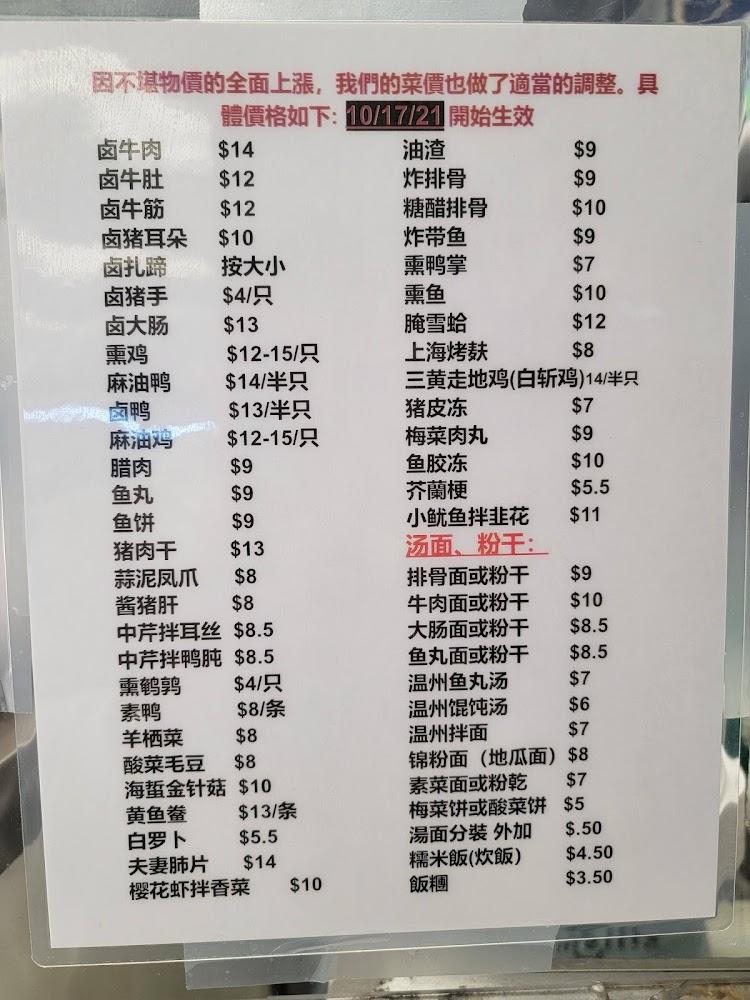 因不堪物價的全面上漲，我們的菜價也做了適當的調整。具
體價格如下: 10/17/21 開始生效
卤牛肉 $14
卤牛肚 $12
卤牛筋 $12
卤猪耳朵 $10
卤扎蹄 按大小
卤猪手 $4/只
卤大肠 $13
熏鸡 $12-15/只
麻油鸭 $14/半只
卤鸭 $13/半只
麻油鸡 $12-15/只
腊肉 $9
鱼丸 $9
鱼饼 $9
猪肉干 $13
蒜泥凤爪 $8
酱猪肝 $8
中芹拌耳丝 $8.5
中芹拌鸭肫 $8.5
熏鹌鹑 $4/只
素鸭 $8/条
羊栖菜 $8
酸菜毛豆 $8
海蜇金针菇 $10
黄鱼鲞 $13/条
白罗卜 $5.5
夫妻肺片 $14
樱花虾拌香菜 $10
油渣 $9
炸排骨 $9
糖醋排骨 $10
炸带鱼 $9
熏鸭掌 $7
熏鱼 $10
腌雪蛤 $12
上海烤麸 $8
三黄走地鸡(白斩鸡)14/半只
猪皮冻 $7
梅菜肉丸 $9
鱼胶冻 $10
芥蘭梗 $5.5
小鱿鱼拌韭花 $11
汤面、粉干：
排骨面或粉干 $9
牛肉面或粉干 $10
大肠面或粉干 $8.5
鱼丸面或粉干 $8.5
温州鱼丸汤 $7
温州馄饨汤 $6
温州拌面 $7
锦粉面（地瓜面）$8
素菜面或粉乾 $7
梅菜饼或酸菜饼 $5
湯面分裝 外加 $.50
糯米飯(炊飯） $4.50
飯糰 $3.50